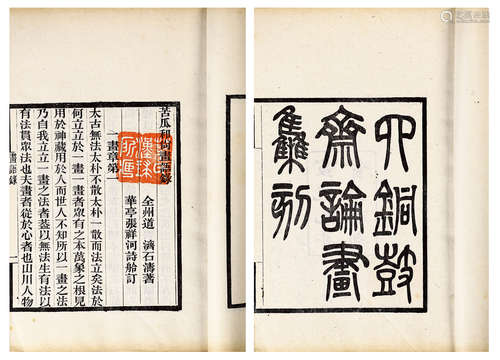 四銅鼓
齋論畫
集刻
苦瓜和尚畫語錄
全州道 濟石濤著
華亭張祥河詩舲訂
一畫章第一
太古無法太朴不散太朴一散而法立矣法於
何立立於一畫一畫者衆有之本萬象之根見
用於神藏用於人而世人不知所以一畫之法
乃自我立立一畫之法者蓋以無法生有法以
有法貫眾法也夫畫者從於心者也山川人物
畫語錄